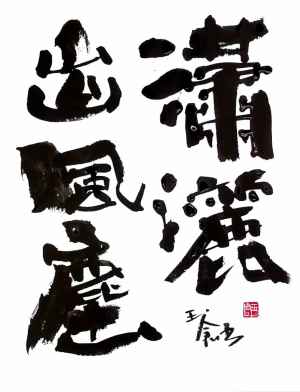 瀟灑
出風塵